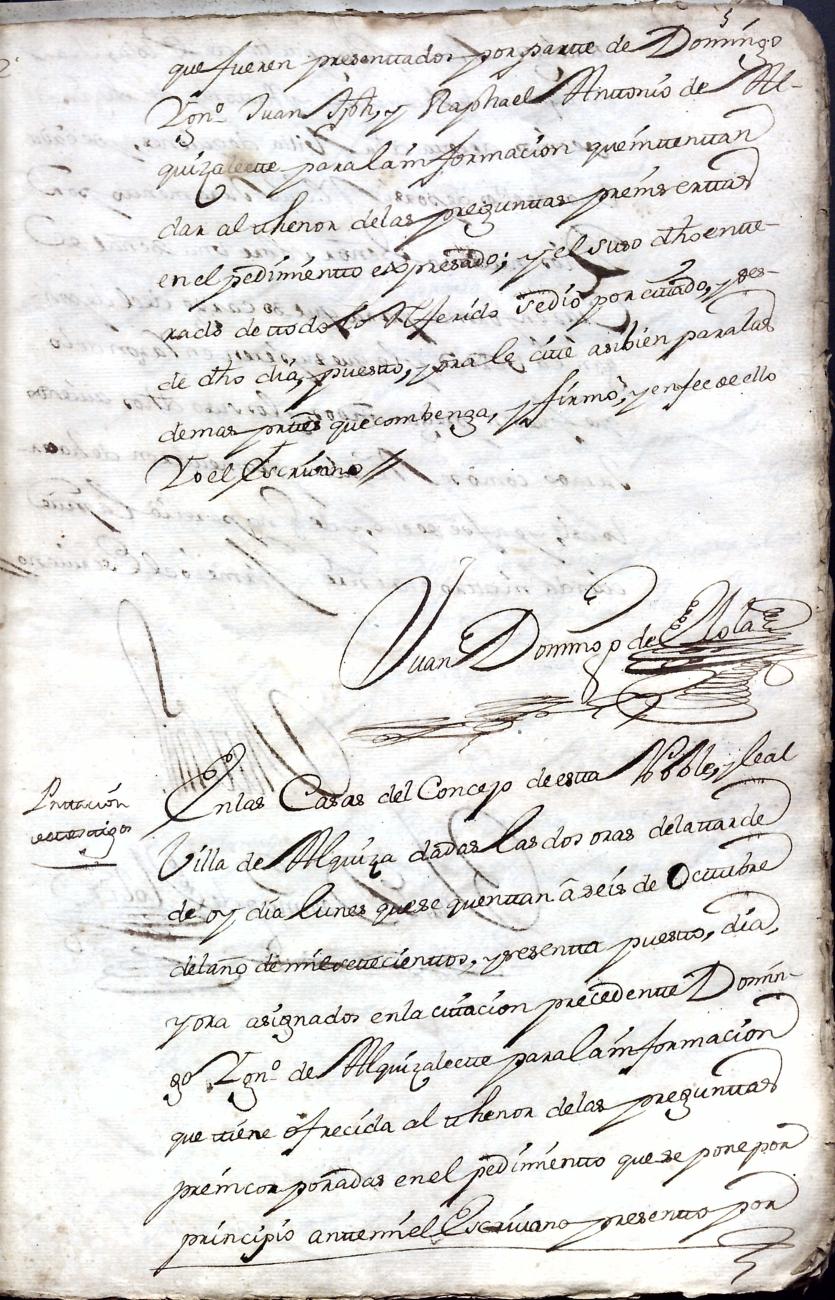 5
que fueren presenttados por partte de Domingo
Ygn.o Juan Jph, y Raphael Anttonio de Al-
quizalette para la informacion que inttenttan
dar al thenor delas pregunttas preinserttas
en el pedimientto expresado; y el suso dho entte-
rado de ttodo lo Referido sedio por cittado, y des-
de dho dia, puestto, y ora le cite asibien paralas
demas parttes que combenga, y firmó, y en fee de ello
Yo el Escrivano //
Juan Domingo de Lola
Prttacion
de ttesttigos
En las Casas del Concejo de estta Noble, y leal
Villa de Alquiza dadas las dos oras dela ttarde
de oy dia lunes que se quenttan â seis de Octtubre
del año de mil settecienttos, y sesentta puestto, dia,
y ora asignados en la cittacion precedentte Domin-
go Ygn.o de Alquizalette para la informacion
que ttiene ofrecida al thenor delas pregunttas
preincorporadas en el pedimientto que se pone por
principio antte mi el Escrivano presentto por